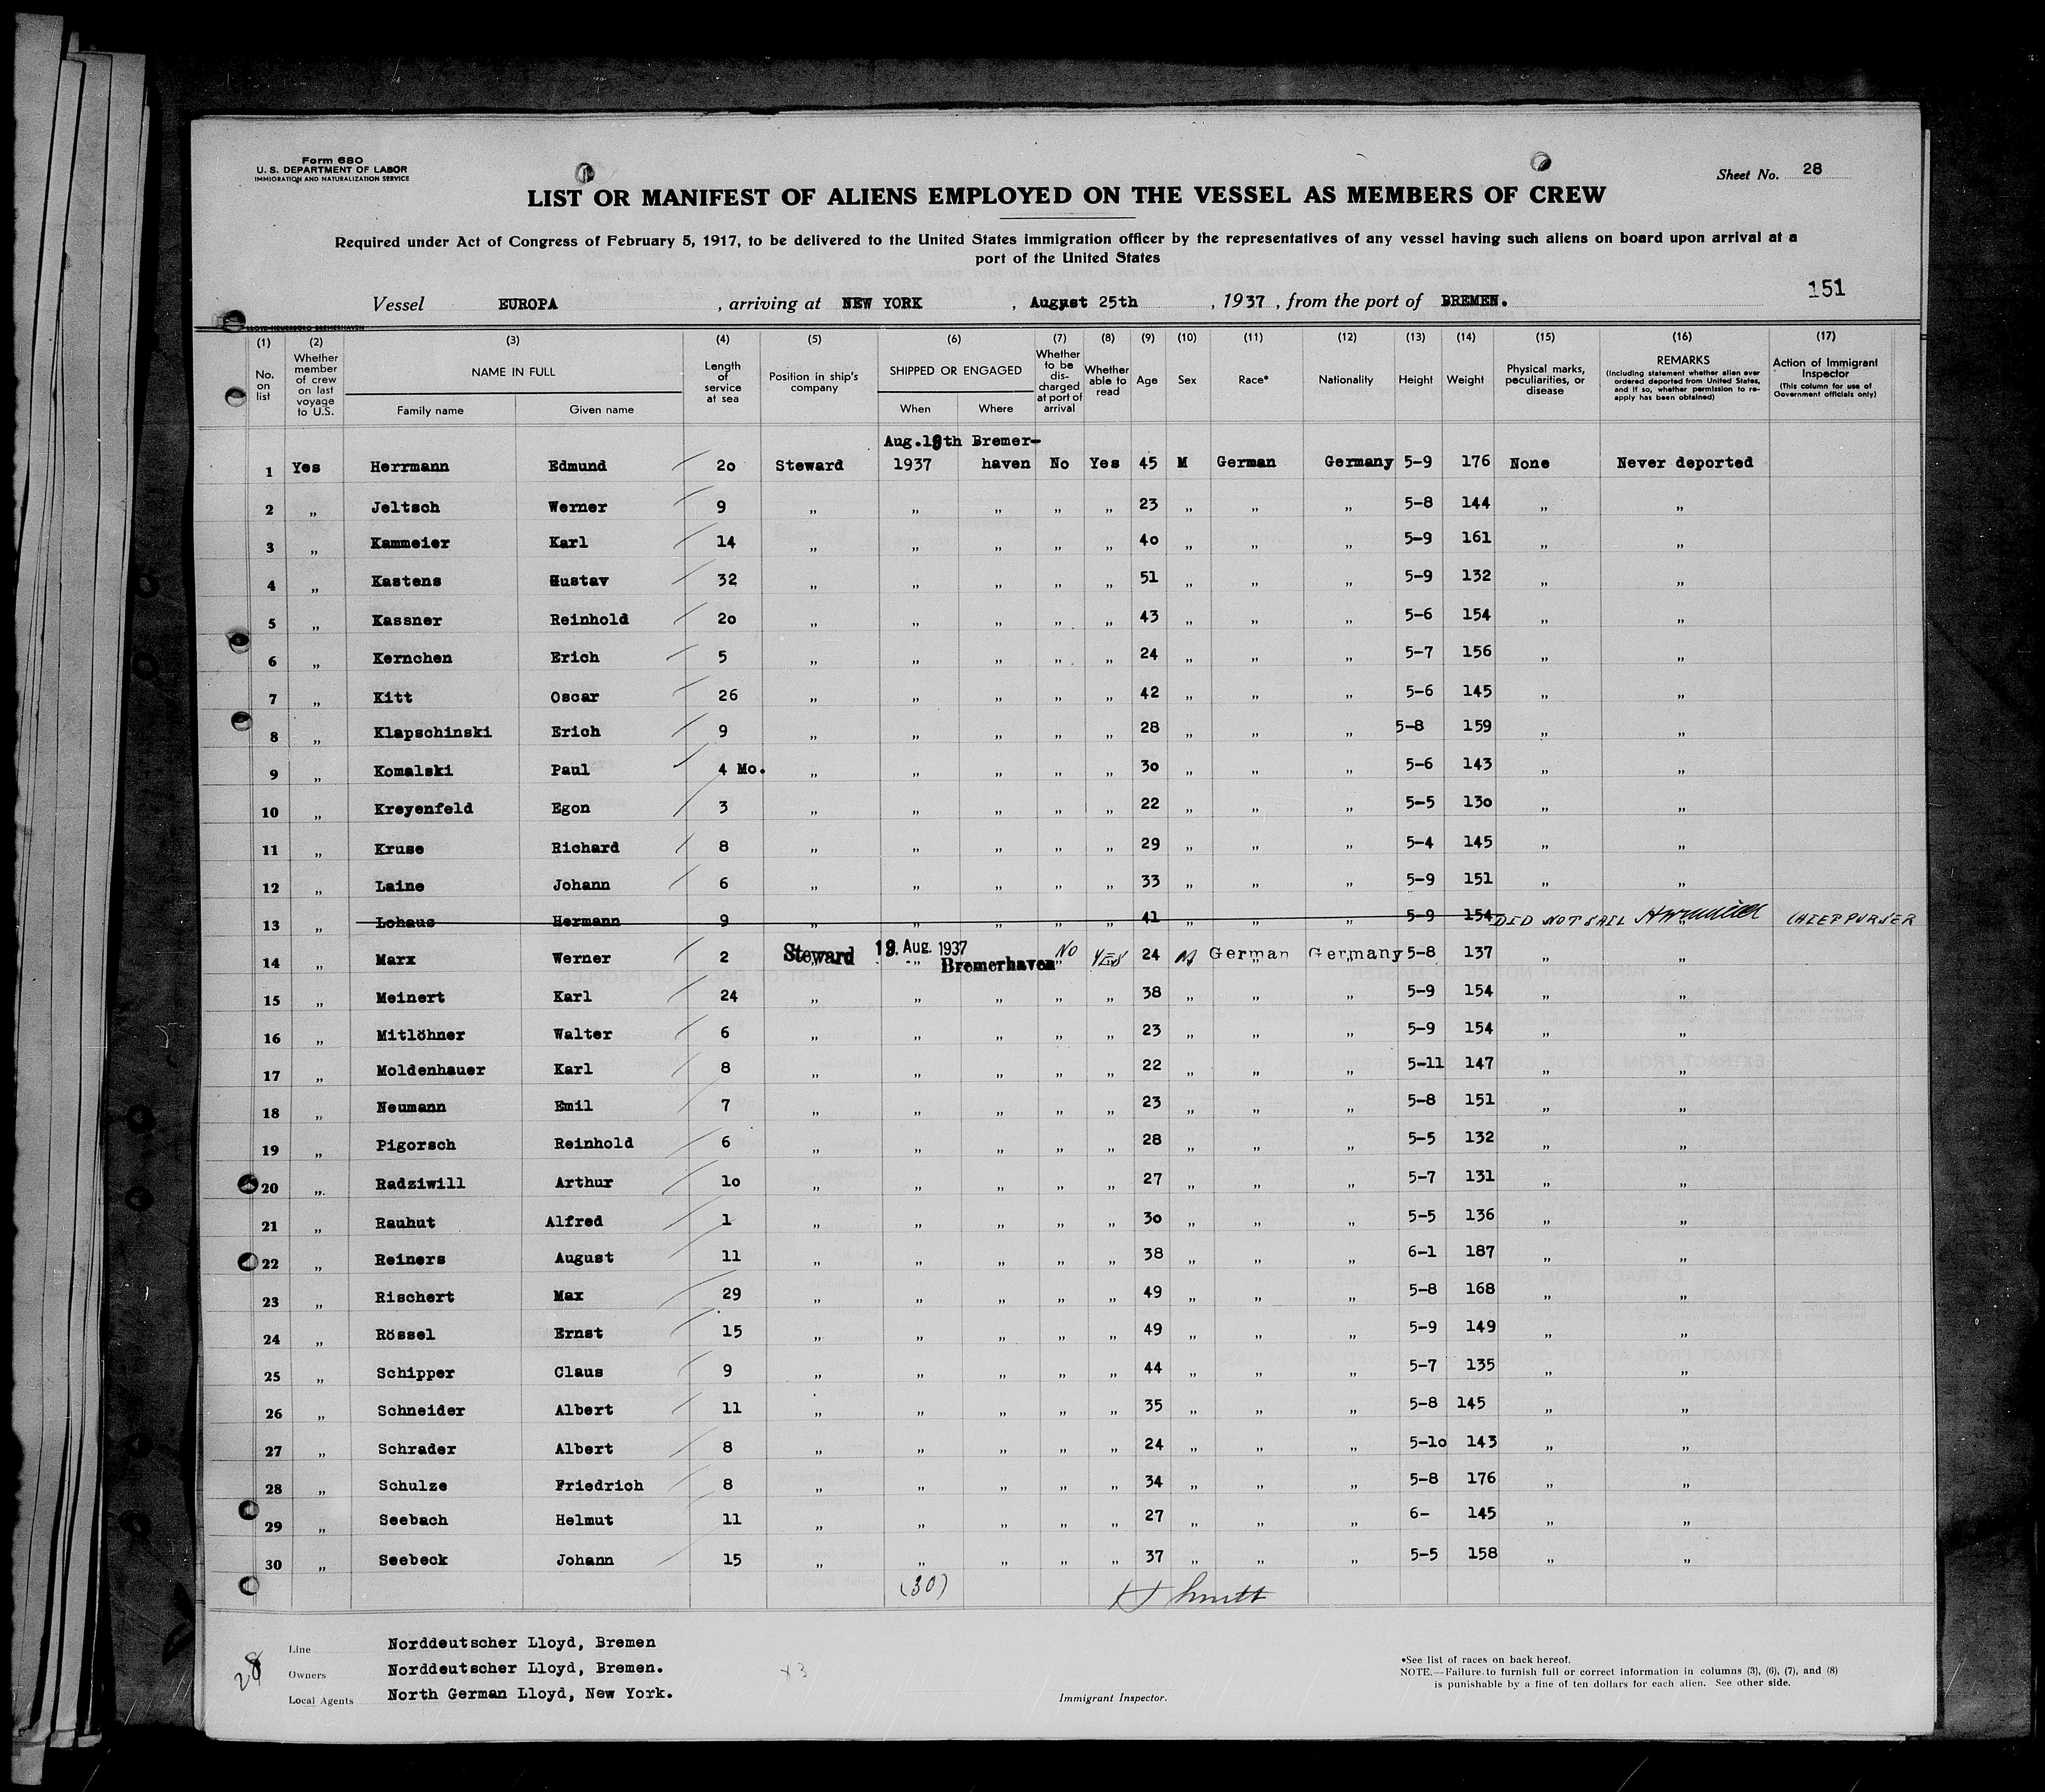 Form 680
U. S. DEPARTMENT OF LABOR
IMMIGRATION AND NATURALIZATION SERVICE
Sheet No. 28
LIST OR MANIFEST OF ALIENS EMPLOYED ON THE VESSEL AS MEMBERS OF CREW
Required under Act of Congress of February 5, 1917, to be delivered to the United States immigration officer by the representatives of any vessel having such aliens on board upon arrival at a
port of the United States
151
Vessel EUROPA , arriving at NEW YORK , August 25th , 1937 , from the port of BREMEN.
LLOYD-HEUERBURO BREMERHAVEN
(1) (2) (3) (4) (5) (6) (7) (8) (9) (10) (11) (12) (13) (14) (15) (16) (17)
No. on list
Whether member of crew on last voyage to U.S.
NAME IN FULL
Family name Given name
Length of service at sea
Position in ship's company
SHIPPED OR ENGAGED
When Where
Whether to be discharged at port of arrival
Whether able to read
Age Sex Race* Nationality Height Weight
Physical marks, peculiarities, or disease
REMARKS
(Including statement whether alien ever ordered deported from United States, and if so, whether permission to re-apply has been obtained)
Action of Immigrant Inspector
(This column for use of Government officials only)
Aug.19th Bremer-
1 Yes Herrmann Edmund 20 Steward 1937 haven No Yes 45 M German Germany 5-9 176 None Never deported
2 „ Jeltsch Werner 9 „ „ „ „ „ 23 „ „ „ 5-8 144 „ „
3 „ Kammeier Karl 14 „ „ „ „ „ 40 „ „ „ 5-9 161 „ „
4 „ Kastens Gustav 32 „ „ „ „ „ 51 „ „ „ 5-9 132 „ „
5 „ Kassner Reinhold 20 „ „ „ „ „ 43 „ „ „ 5-6 154 „ „
6 „ Kernchen Erich 5 „ „ „ „ „ 24 „ „ „ 5-7 156 „ „
7 „ Kitt Oscar 26 „ „ „ „ „ 42 „ „ „ 5-6 145 „ „
8 „ Klapschinski Erich 9 „ „ „ „ „ 28 „ „ „ 5-8 159 „ „
9 „ Komalski Paul 4 Mo. „ „ „ „ „ 30 „ „ „ 5-6 143 „ „
10 „ Kreyenfeld Egon 3 „ „ „ „ „ 22 „ „ „ 5-5 130 „ „
11 „ Kruse Richard 8 „ „ „ „ „ 29 „ „ „ 5-4 145 „ „
12 „ Laine Johann 6 „ „ „ „ „ 33 „ „ „ 5-9 151 „ „
13 „ Lohaus Hermann 9 „ „ „ „ „ 41 „ „ „ 5-9 154 DID NOT SAIL CHIEF PURSER
14 „ Marx Werner 2 Steward 19. Aug. 1937 Bremerhaven No YES 24 M German Germany 5-8 137 „ „
15 „ Meinert Karl 24 „ „ „ „ „ 38 „ „ „ 5-9 154 „ „
16 „ Mitlöhner Walter 6 „ „ „ „ „ 23 „ „ „ 5-9 154 „ „
17 „ Moldenhauer Karl 8 „ „ „ „ „ 22 „ „ „ 5-11 147 „ „
18 „ Neumann Emil 7 „ „ „ „ „ 23 „ „ „ 5-8 151 „ „
19 „ Pigorsch Reinhold 6 „ „ „ „ „ 28 „ „ „ 5-5 132 „ „
20 „ Radziwill Arthur 10 „ „ „ „ „ 27 „ „ „ 5-7 131 „ „
21 „ Rauhut Alfred 1 „ „ „ „ „ 30 „ „ „ 5-5 136 „ „
22 „ Reiners August 11 „ „ „ „ „ 38 „ „ „ 6-1 187 „ „
23 „ Rischert Max 29 „ „ „ „ „ 49 „ „ „ 5-8 168 „ „
24 „ Rössel Ernst 15 „ „ „ „ „ 49 „ „ „ 5-9 149 „ „
25 „ Schipper Claus 9 „ „ „ „ „ 44 „ „ „ 5-7 135 „ „
26 „ Schneider Albert 11 „ „ „ „ „ 35 „ „ „ 5-8 145 „ „
27 „ Schrader Albert 8 „ „ „ „ „ 24 „ „ „ 5-10 143 „ „
28 „ Schulze Friedrich 8 „ „ „ „ „ 34 „ „ „ 5-8 176 „ „
29 „ Seebach Helmut 11 „ „ „ „ „ 27 „ „ „ 6- 145 „ „
30 „ Seebeck Johann 15 „ „ „ „ „ 37 „ „ „ 5-5 158 „ „
(30)
28
Line Norddeutscher Lloyd, Bremen
Owners Norddeutscher Lloyd, Bremen.
Local Agents North German Lloyd, New York.
Immigrant Inspector.
*See list of races on back hereof.
NOTE.—Failure to furnish full or correct information in columns (3), (6), (7), and (8)
is punishable by a fine of ten dollars for each alien. See other side.